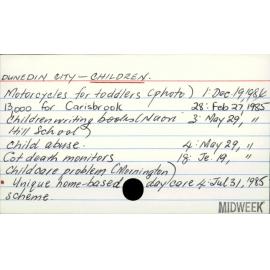 DUNEDIN CITY — CHILDREN.
Motorcycles for toddlers (photo) 1: Dec 19, 1984
13000 for Carisbrook 28: Feb 27, 1985
Children writing books (Nuon 3: May 29, "
Hill School)
child abuse. 4: May 29, "
Cot death monitors 18: Je. 19, "
Childcare problem (Mornington)
Unique home-based day care 4: Jul 31, 1985
scheme.
MIDWEEK